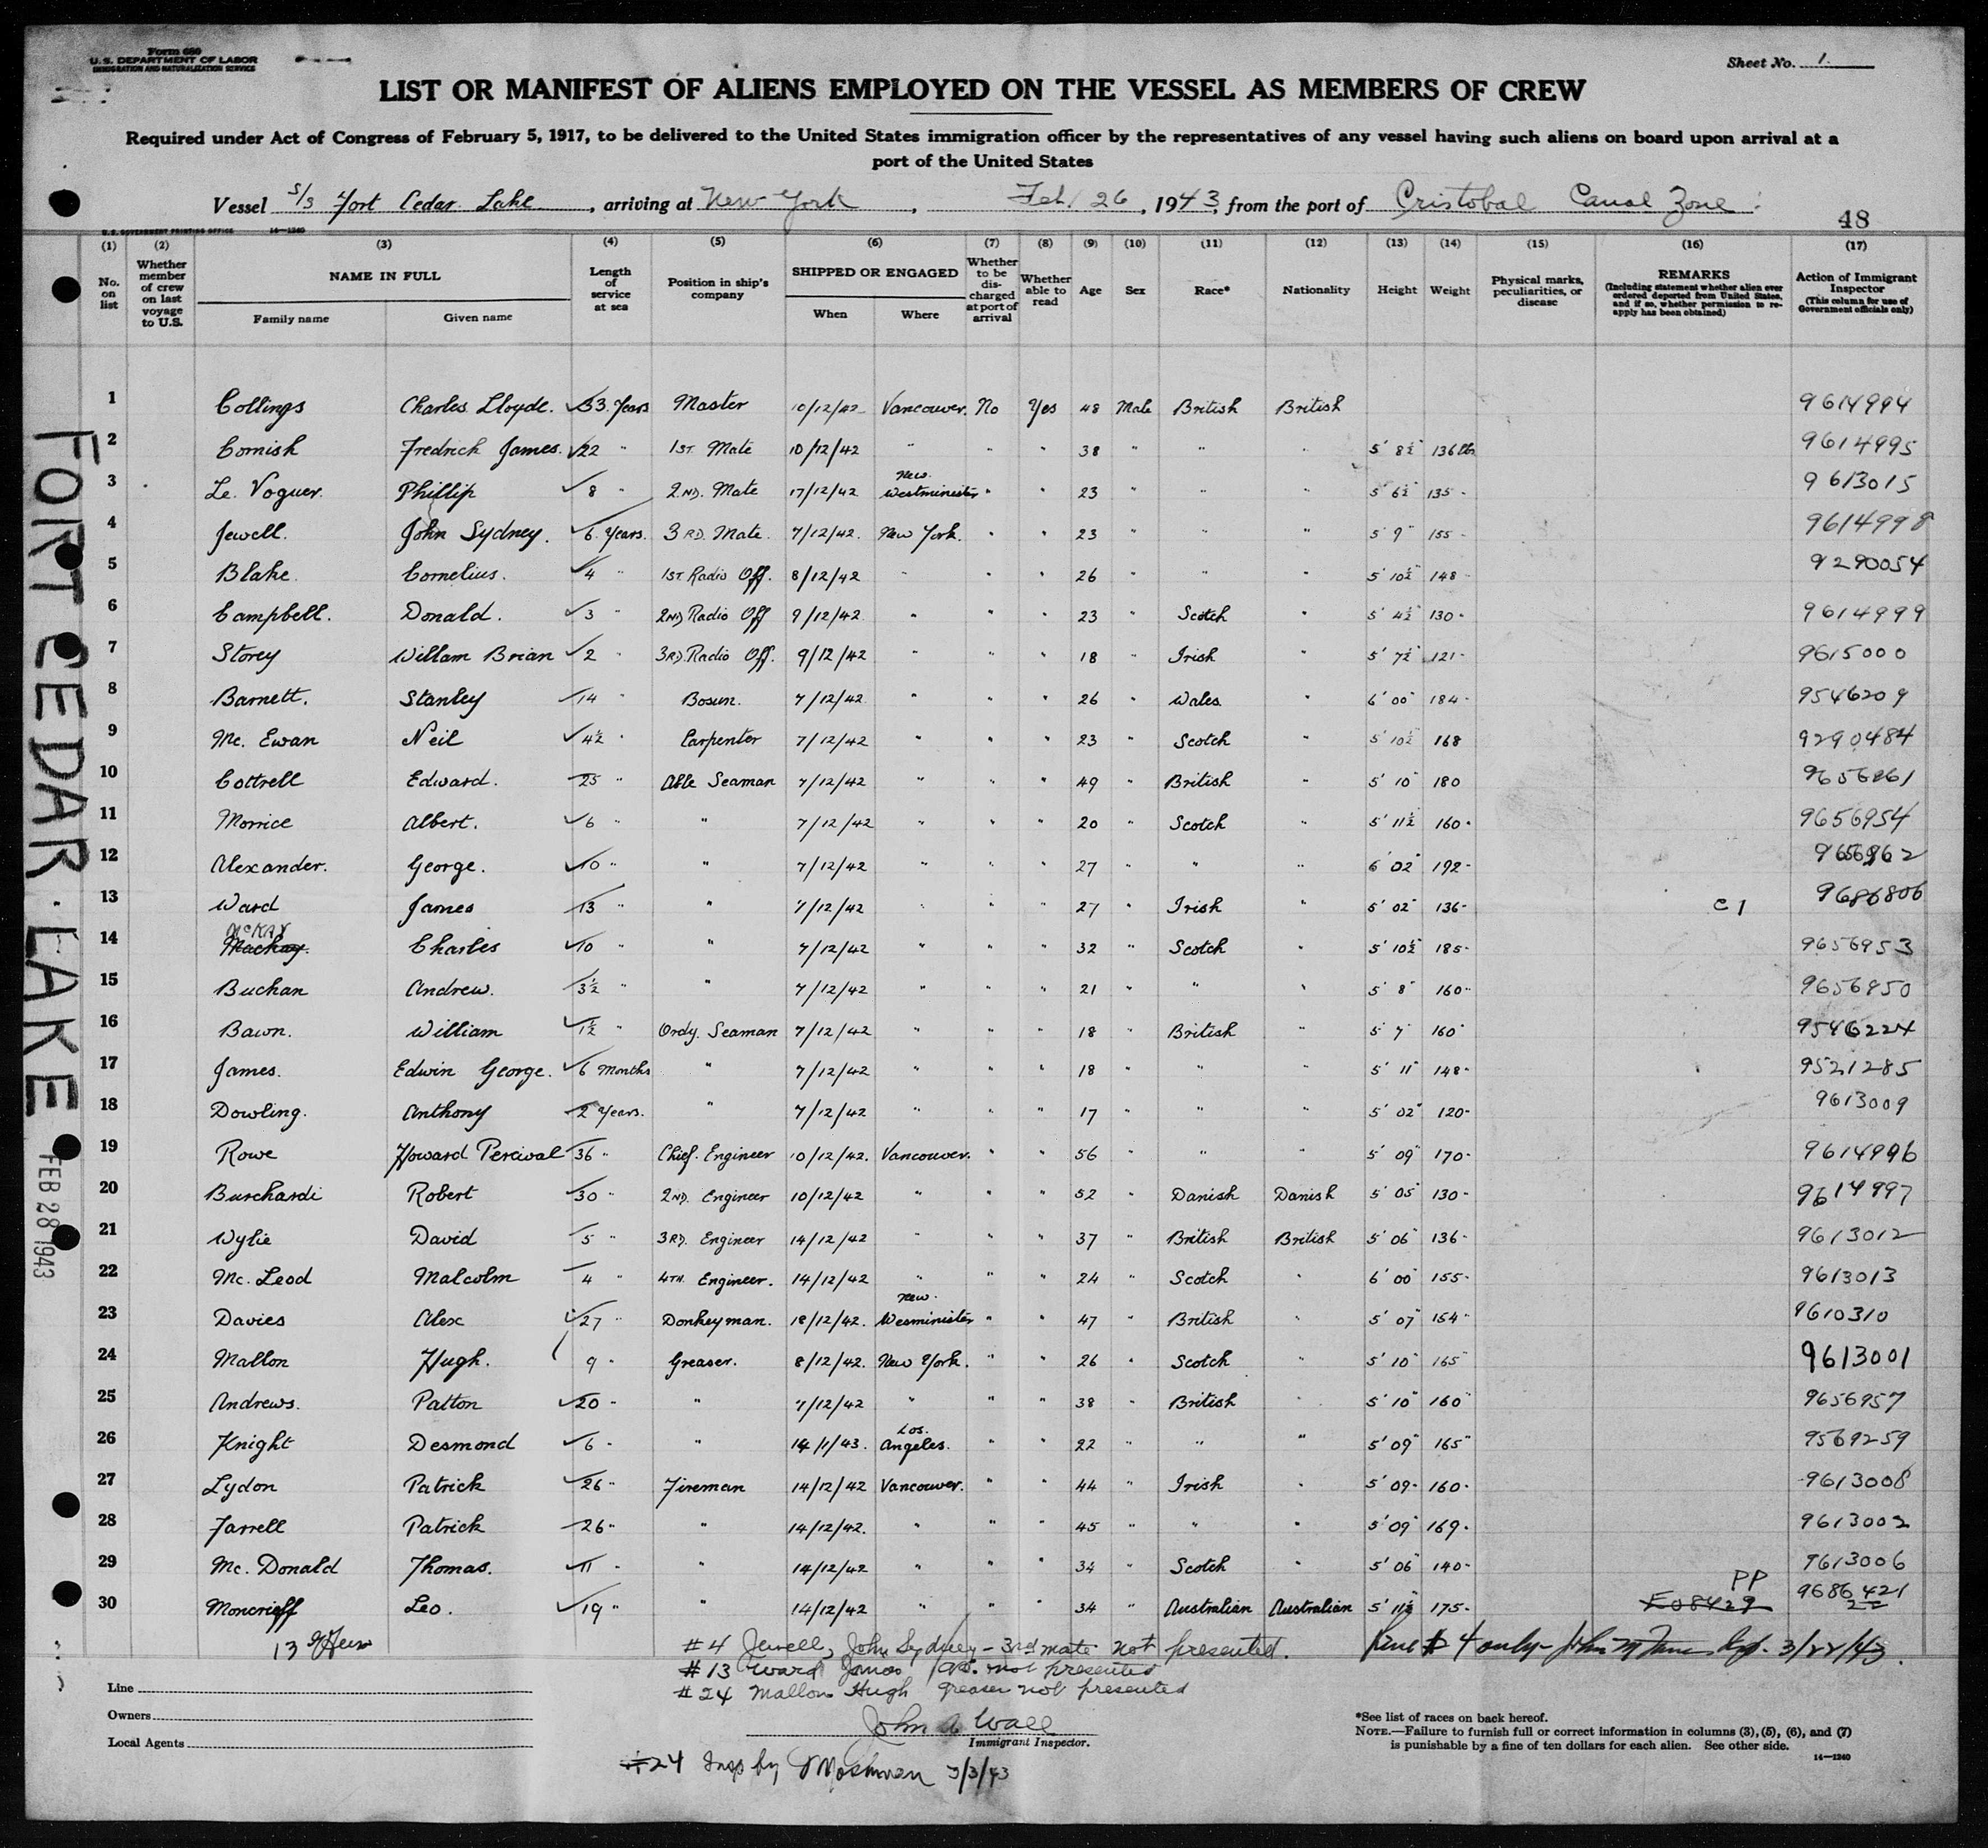 Form 680
U. S. DEPARTMENT OF LABOR
IMMIGRATION AND NATURALIZATION SERVICE
Sheet No. 1
LIST OR MANIFEST OF ALIENS EMPLOYED ON THE VESSEL AS MEMBERS OF CREW
Required under Act of Congress of February 5, 1917, to be delivered to the United States immigration officer by the representatives of any vessel having such aliens on board upon arrival at a
port of the United States
Vessel S/S Fort Cedar Lake, arriving at New York, Feb. 26, 1943, from the port of Cristobal Canal Zone
48
U.S. GOVERNMENT PRINTING OFFICE 14—1240
(1) (2) (3) (4) (5) (6) (7) (8) (9) (10) (11) (12) (13) (14) (15) (16) (17)
No. on list
Whether member of crew on last voyage to U.S.
NAME IN FULL
Family name
Given name
Length of service at sea
Position in ship's company
SHIPPED OR ENGAGED
When
Where
Whether to be discharged at port of arrival
Whether able to read
Age
Sex
Race*
Nationality
Height
Weight
Physical marks, peculiarities, or disease
REMARKS
(Including statement whether alien ever ordered deported from United States, and if so, whether permission to reapply has been obtained)
Action of Immigrant Inspector
(This column for use of Government officials only)
1 Collings Charles Lloyde. 33 Years Master 10/12/42 Vancouver. No Yes 48 Male British British 9614994
2 Cornish Fredrick James. 22 " 1ST. Mate 10/12/42 " " " 38 " " " 5' 8½" 136 lbs 9614995
3 Le. Voguer. Phillip 8 " 2ND. Mate 17/12/42 New Westminister " " 23 " " " 5' 6½" 135 " 9613015
4 Jewell. John Sydney. 6 Years. 3RD. Mate. 7/12/42. New York. " " 23 " " " 5' 9" 155 " 9614998
5 Blake. Cornelius. 4 " 1ST. Radio Off. 8/12/42 " " " 26 " " " 5' 10½" 148 " 9290054
6 Campbell. Donald. 3 " 2ND Radio Off 9/12/42 " " " 23 " Scotch " 5' 4½" 130 " 9614999
7 Storey Willam Brian 2 " 3RD. Radio Off. 9/12/42 " " " 18 " Irish " 5' 7½" 121 " 9615000
8 Barnett. Stanley 14 " Bosun. 7/12/42 " " " 26 " Wales " 6' 00" 184 " 9546209
9 Mc. Ewan Neil 4½ " Carpenter 7/12/42 " " " 23 " Scotch " 5' 10½" 168 9290484
10 Cottrell Edward. 25 " Able Seaman 7/12/42 " " " 49 " British " 5' 10" 180
11 Morrice Albert. 6 " " 7/12/42 " " " 20 " Scotch " 5' 11½" 160 " 9656954
12 Alexander. George. 10 " " 7/12/42 " " " 27 " " " 6' 02" 192 "
13 Ward James 13 " " 7/12/42 " " " 27 " Irish " 5' 02" 136 " C 1 9686806
14 McKay Mackay. Charles 10 " " 7/12/42 " " " 32 " Scotch " 5' 10½" 185 " 9656953
15 Buchan Andrew. 3½ " " 7/12/42 " " " 21 " " " 5' 8" 160 " 9656950
16 Bawn. William 1½ " Ordy. Seaman 7/12/42 " " " 18 " British " 5' 7" 160 " 9546224
17 James. Edwin George. 6 Months " 7/12/42 " " " 18 " " " 5' 11" 148 " 9521285
18 Dowling. Anthony 2 Years. " 7/12/42 " " " 17 " " " 5' 02" 120 " 9613009
19 Rowe Howard Percival 36 " Chief. Engineer 10/12/42. Vancouver. " " 56 " " " 5' 09" 170 " 9614996
20 Burchardi Robert 30 " 2ND. Engineer 10/12/42 " " " 52 " Danish Danish 5' 05" 130 " 9614997
21 Wylie David 5 " 3RD. Engineer 14/12/42 " " " 37 " British British 5' 06" 136 " 9613012
22 Mc. Leod Malcolm 4 " 4TH. Engineer. 14/12/42 " " " 24 " Scotch " 6' 00" 155 " 9613013
23 Davies Alex 27 " Donkeyman. 18/12/42. New. Wesminister " " 47 " British " 5' 07" 154 " 9610310
24 Mallon Hugh. 9 " Greaser. 8/12/42. New York. " " 26 " Scotch " 5' 10" 165 " 9613001
25 Andrews. Patton 20 " " 7/12/42 " " " 38 " British " 5' 10" 160 " 9656957
26 Knight Desmond 6 " " 14/1/43. Los. Angeles. " " 22 " " " 5' 09" 165 " 9569259
27 Lydon Patrick 26 " Fireman 14/12/42 Vancouver. " " 44 " Irish " 5' 09" 160 " 9613008
28 Farrell Patrick 26 " " 14/12/42. " " " 45 " " " 5' 09" 169 " 9613002
29 Mc. Donald Thomas. 11 " " 14/12/42 " " " 34 " Scotch " 5' 06" 140 " 9613006
30 Moncrieff Leo. 19 " " 14/12/42 " " " 34 " Australian Australian 5' 11½" 175 " PP E08429 9686421
13
#4 Jewell, John Sydney - 3rd mate not presented.
Line #4 only - John 3/22/43.
#13 Ward James AS. not presented
#24 Mallon Hugh greaser not presented
Line
Owners
Local Agents
John A Wall
Immigrant Inspector.
#24 Insp by 3/3/43
*See list of races on back hereof.
NOTE.—Failure to furnish full or correct information in columns (3), (5), (6), and (7)
is punishable by a fine of ten dollars for each alien. See other side.
14—1240
FORT CEDAR LAKE
FEB 28 1943